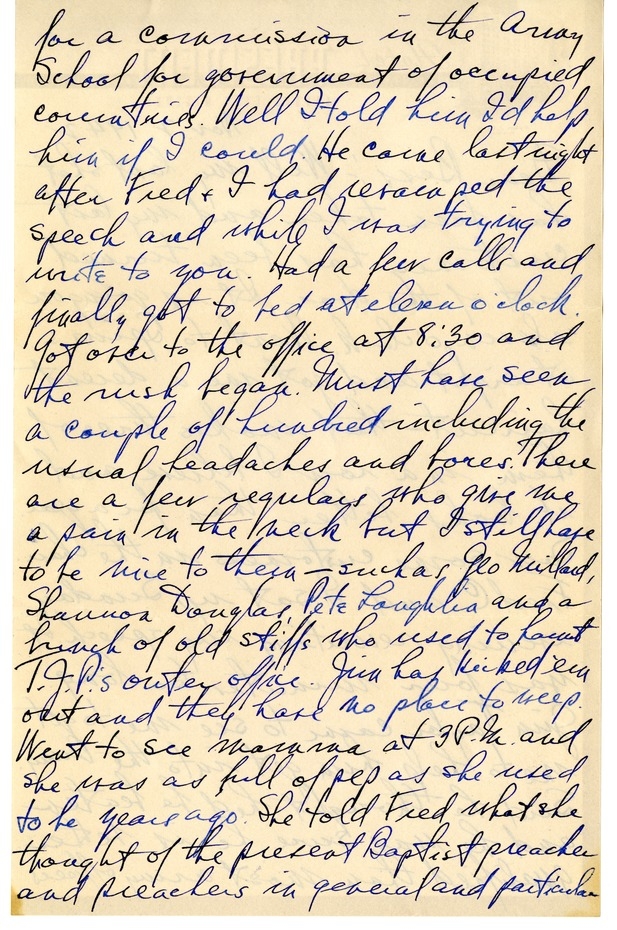 for a commission in the Army
School for government of occupied
countries. Well I told him I'd help
him if I could. He came last night
after Fred + I had revamped the
speech and while I was trying to
write to you. Had a few calls and
finally got to bed at eleven o'clock.
Got over to the office at 8:30 and
the rush began. Must have seen
a couple of hundred including the
usual headaches and bores. There
are a few regulars who give me
a pain in the neck but I still have
to be nice to them – such as Geo Millard,
Shannon Douglas, Pete Laughlin and a
bunch of old stiffs who used to haunt
T.J.P.'s outer office. Jim has kicked 'em
out and they have no place to weep.
Went to see mamma at 3 P.M. and
she was as full of pep as she used
to be years ago. She told Fred what she
thought of the present Baptist preacher
and preachers in general and particular